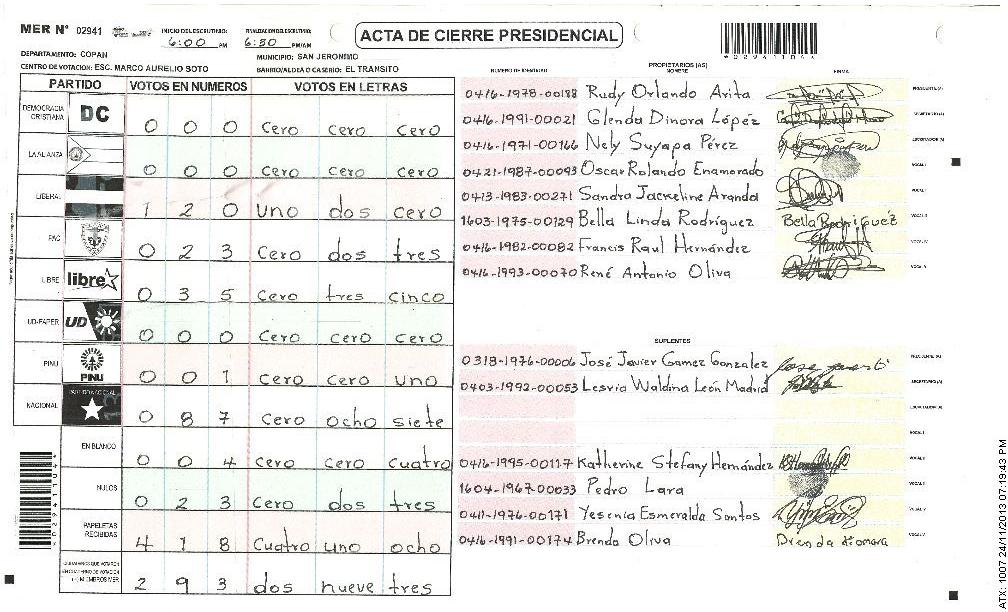 MER N° 02941
INICIO DEL ESCRUTINIO: 6:00 PM
FINALIZACION DEL ESCRUTINIO: 6:50 PM/AM
ACTA DE CIERRE PRESIDENCIAL
DEPARTAMENTO: COPAN
MUNICIPIO: SAN JERONIMO
CENTRO DE VOTACION: ESC. MARCO AURELIO SOTO
BARRIO/ALDEA O CASERIO: EL TRANSITO
PARTIDO VOTOS EN NUMEROS VOTOS EN LETRAS
DEMOCRACIA CRISTIANA DC 0 0 0 cero cero cero
LA ALIANZA 0 0 0 cero cero cero
LIBERAL 1 2 0 uno dos cero
PAC 0 2 3 cero dos tres
LIBRE libre 0 3 5 cero tres cinco
UD-FAPER UD 0 0 0 cero cero cero
PINU PINU 0 0 1 cero cero uno
NACIONAL 0 8 7 cero ocho siete
EN BLANCO 0 0 4 cero cero cuatro
NULOS 0 2 3 cero dos tres
PAPELETAS RECIBIDAS 4 1 8 cuatro uno ocho
CIUDADANOS QUE VOTARON (+) MIEMBROS MER 2 9 3 dos nueve tres
NUMERO DE IDENTIDAD PROPIETARIOS (AS) NOMBRE FIRMA
0416-1978-00188 Rudy Orlando Arita PRESIDENTE (A)
0416-1991-00021 Glenda Dinora López SECRETARIO (A)
0416-1971-00166 Nely Suyapa Pérez ESCRUTADOR (A)
0421-1987-00093 Oscar Rolando Enamorado VOCAL I
0413-1983-00271 Sandra Jackeline Aranda
1603-1975-00129 Bella Linda Rodríguez Bella Rodriguez
0416-1982-00082 Francis Raul Hernández
0416-1993-00070 René Antonio Oliva
SUPLENTES
0318-1976-00006 José Javier Gamez Gonzalez PRESIDENTE (A)
0403-1992-00053 Lesvia Waldina León Madrid SECRETARIO (A)
ESCRUTADOR (A)
VOCAL I
0416-1995-00117 Katherine Stefany Hernández
1604-1967-00033 Pedro Lara
0411-1976-00171 Yesenia Esmeralda Santos
0416-1991-00174 Brenda Oliva
ATX: 1007 24/11/2013 07:19:43 PM